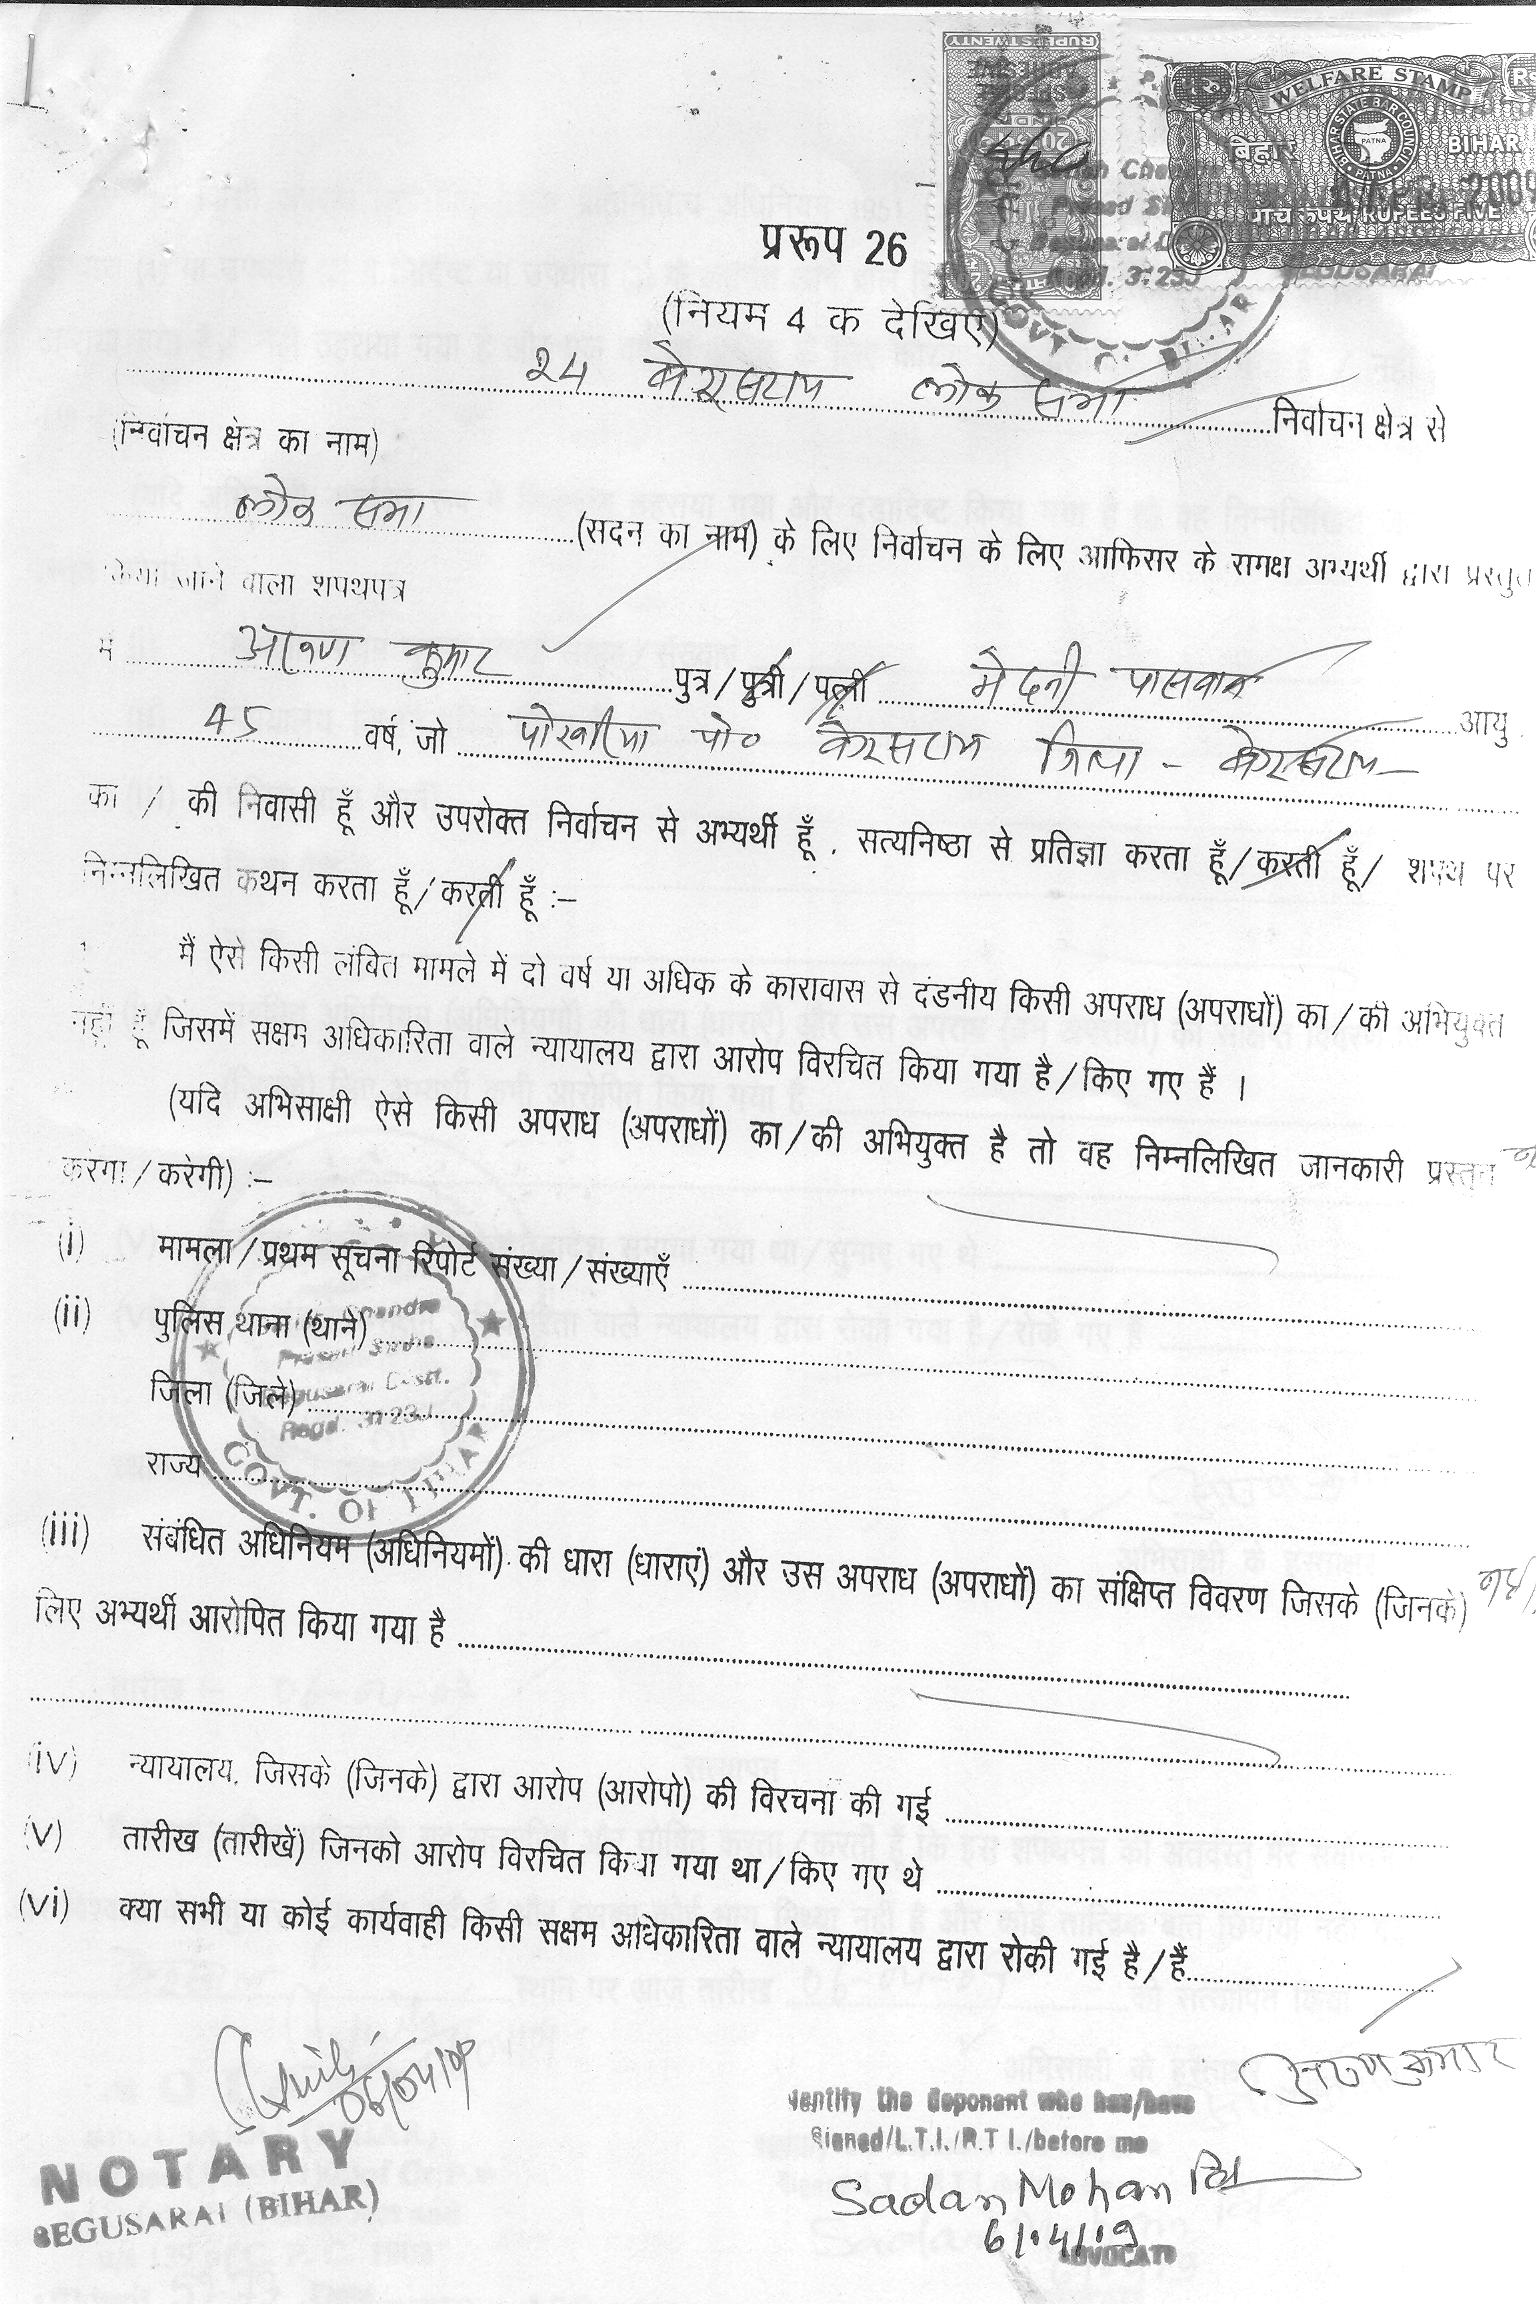 RUPEES TWENTY
WELFARE STAMP
BIHAR STATE BAR COUNCIL
PATNA
बिहार BIHAR
2009
पाँच रुपये RUPEES FIVE
BEGUSARAI
प्ररूप 26
(नियम 4 क देखिए)
24 बेगूसराय लोक सभा निर्वाचन क्षेत्र से
(निर्वाचन क्षेत्र का नाम)
लोक सभा (सदन का नाम) के लिए निर्वाचन के लिए आफिसर के समक्ष अभ्यर्थी द्वारा प्रस्तुत
किया जाने वाला शपथपत्र
मैं अरुण कुमार पुत्र/पुत्री/पत्नी मेदनी पासवान आयु
45 वर्ष, जो पोखरिया पो० बेगूसराय जिला - बेगूसराय
का / की निवासी हूँ और उपरोक्त निर्वाचन से अभ्यर्थी हूँ, सत्यनिष्ठा से प्रतिज्ञा करता हूँ/करती हूँ/ शपथ पर
निम्नलिखित कथन करता हूँ/करती हूँ :–
मैं ऐसे किसी लंबित मामले में दो वर्ष या अधिक के कारावास से दंडनीय किसी अपराध (अपराधों) का/की अभियुक्त
नहीं हूँ जिसमें सक्षम अधिकारिता वाले न्यायालय द्वारा आरोप विरचित किया गया है/किए गए हैं ।
(यदि अभिसाक्षी ऐसे किसी अपराध (अपराधों) का/की अभियुक्त है तो वह निम्नलिखित जानकारी प्रस्तुत
करेगा/करेगी) :–
(i) मामला/प्रथम सूचना रिपोर्ट संख्या/संख्याएँ
(ii) पुलिस थाना (थाने)
जिला (जिले)
राज्य
GOVT. OF BIHAR
(iii) संबंधित अधिनियम (अधिनियमों) की धारा (धाराएं) और उस अपराध (अपराधों) का संक्षिप्त विवरण जिसके (जिनके)
लिए अभ्यर्थी आरोपित किया गया है
(iv) न्यायालय, जिसके (जिनके) द्वारा आरोप (आरोपो) की विरचना की गई
(v) तारीख (तारीखें) जिनको आरोप विरचित किया गया था/किए गए थे
(vi) क्या सभी या कोई कार्यवाही किसी सक्षम अधिकारिता वाले न्यायालय द्वारा रोकी गई है/हैं
06/04/09
NOTARY
BEGUSARAI (BIHAR)
अरुण कुमार
identify the deponent who has/have
Signed/L.T.I./R.T.I./before me
Sadan Mohan
6/4/09
ADVOCATE